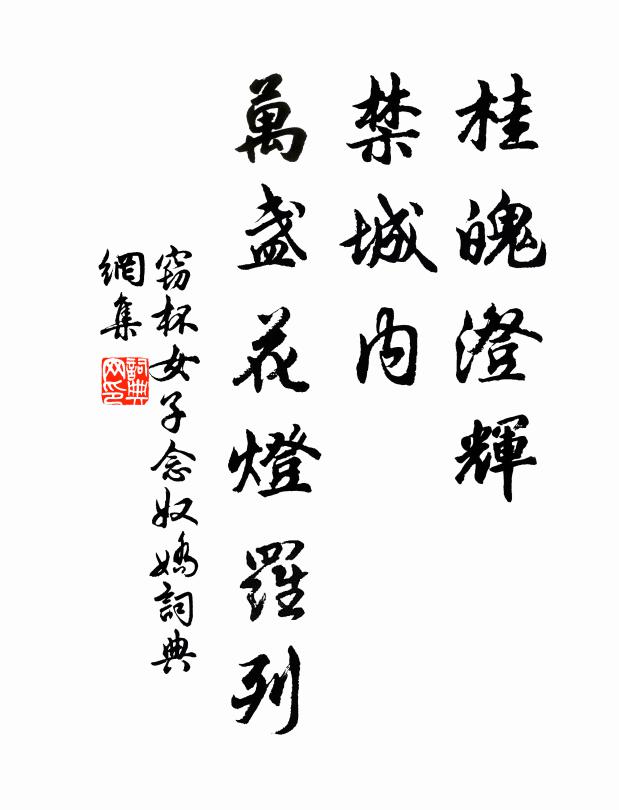 桂魄澄輝
禁城內
萬盞花燈羅列
窃杯女子念奴嬌詞典
網集
詞典
网印